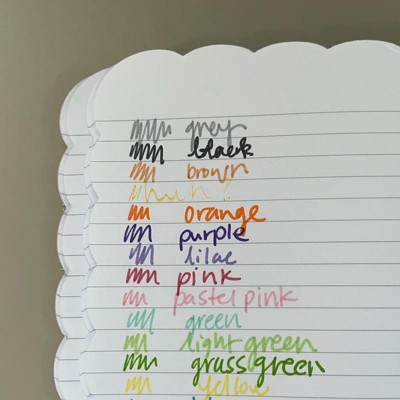 grey
black
brown
huh?
orange
purple
lilac
pink
pastel pink
green
light green
grass green
yellow